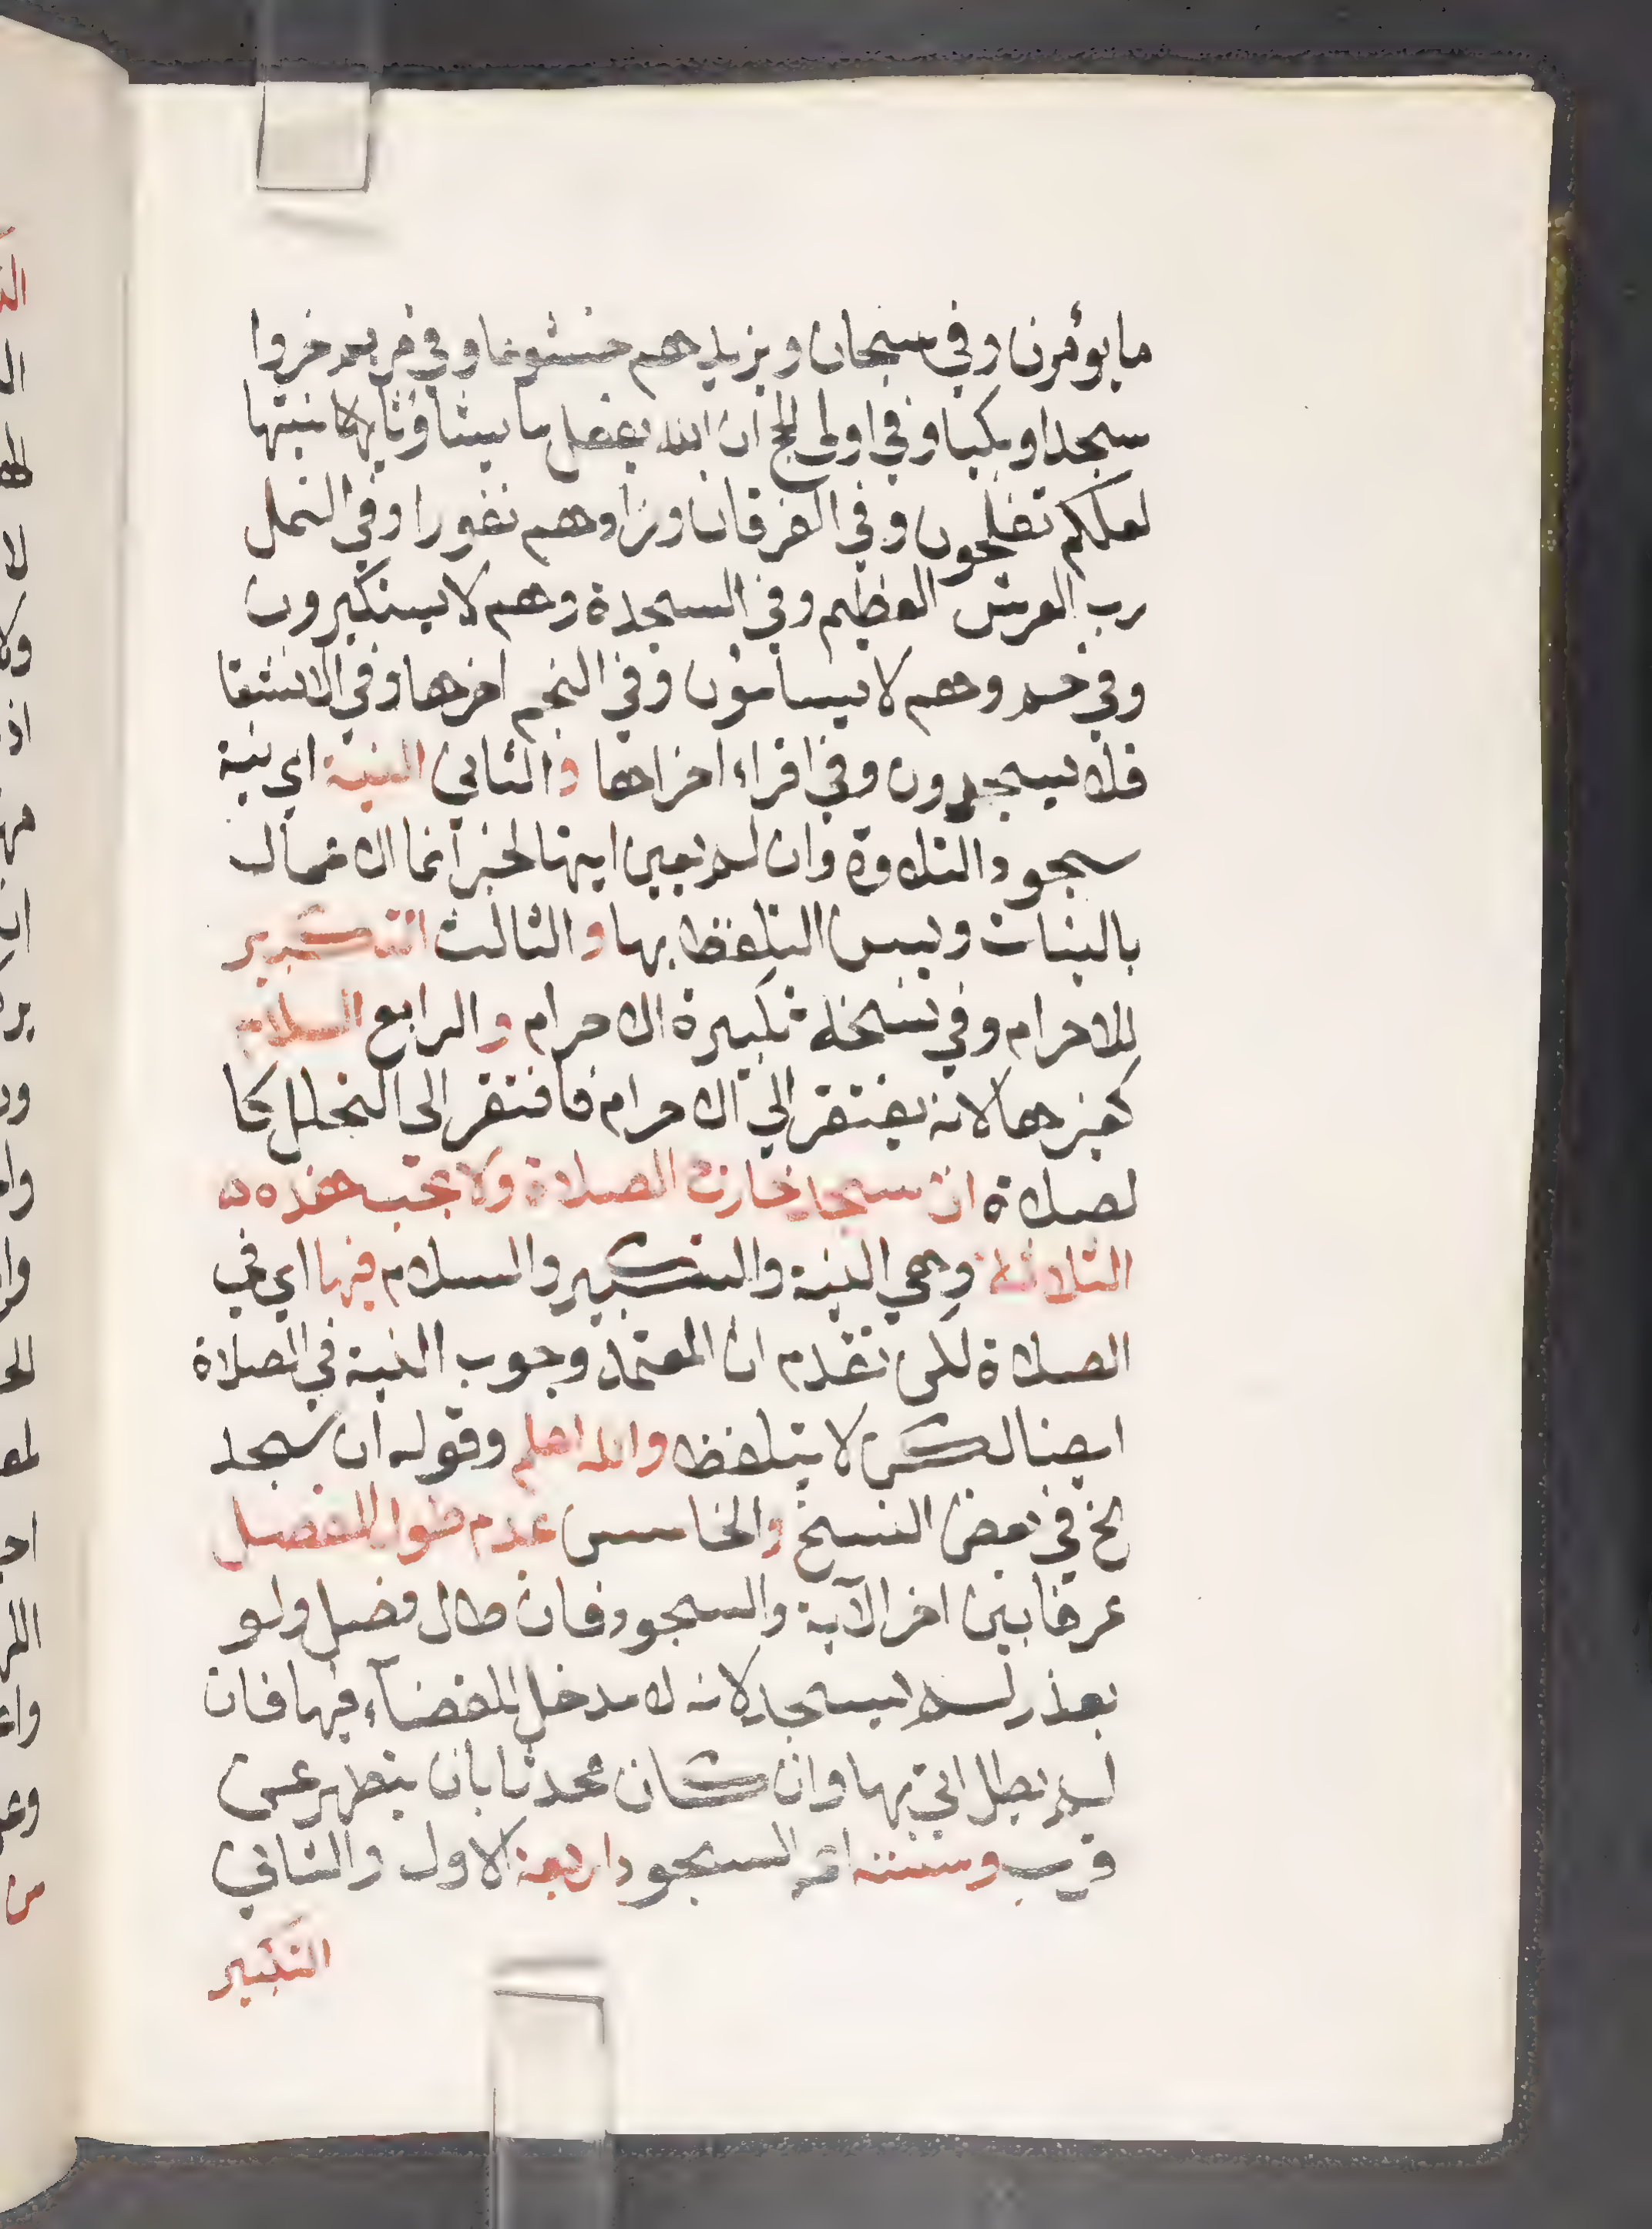 ما يؤمرن وفي سبحان ويزيدهم خشوعا وفي مريم خروا
سجدا وبكيا وفي اولى الحج ان الله يفعل ما يشا وثانيتها
لعلكم تفلحون وفي الفرقان وزادهم نفورا وفي النمل
رب العرش العظيم وفي السجدة وهم لا يستكبرون
وفي حم وهم لا يسامون وفي النجم اخرها وفي الانشقا
فلا يسجدون وفي اقراء اخراها والثاني النية اي نية
سجود التلاوة وان لم يعين ايتها لخبر انما الاعمال
بالنيات ويسن التلفظ بها والثالث التكبير
للاحرام وفي نسخة تكبيرة الاحرام والرابع السلام
كغيرها لانه يفتقر الى الاحرام فافتقر الى التحلل كا
لصلاة ان سجد خارج الصلاة ولا يجب هذه
الثلاثة وهي النية والتكبير والسلام فيها اي في
الصلاة لكن تقدم ان المعتمد وجوب النية في الصلاة
ايضا لكن لا يتلفظ والله اعلم وقوله ان سجد
الخ في بعض النسخ والخامس عدم طول الفصل
عرفا بين اخر الآية والسجود فان طال فصل ولو
بعذر لم يسجد لانه لا مدخل للقضآء فيها فان
لم يطل اتى بها وان كان محدثا بان يتطهر عن
قرب وسننه اي السجود اربعة الاول والثاني
التكبير